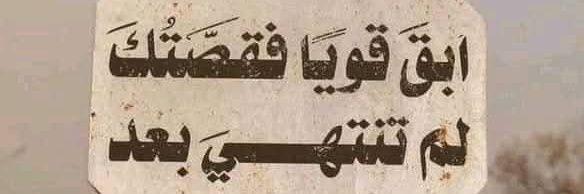 ابقَ قويًا فقصَّتُكَ
لم تنتهـــيَ بعد